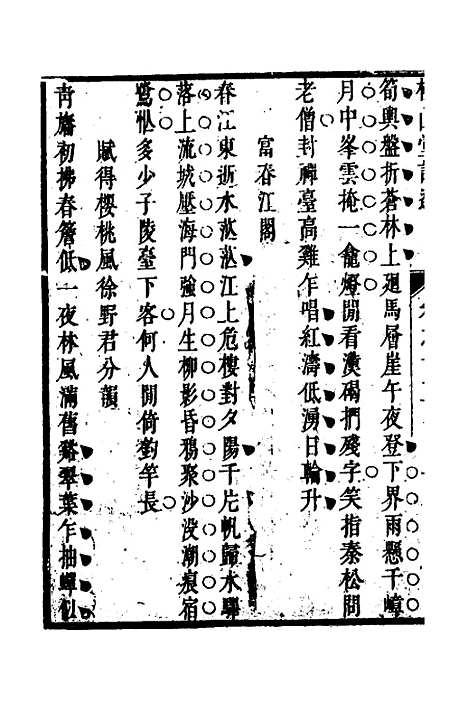 筍輿盤折蒼林上迴馬層崖午夜登下界雨懸千嶂
月中峯雲掩一龕燈閒看漢碣捫殘字笑指秦松問
老僧封禪臺高雞乍唱紅濤低湧日輪升
富春江閣
春江東逝水茫茫江上危樓對夕陽千片帆歸水驛
落上流城壓海門強月生柳影昏鴉聚沙没潮痕宿
鷺忙多少子陵臺下客何人閒倚釣竿長
賦得櫻桃風徐野君分韻
青旛初拂春簷低一夜林風滿舊谿翠葉乍抽蟬似